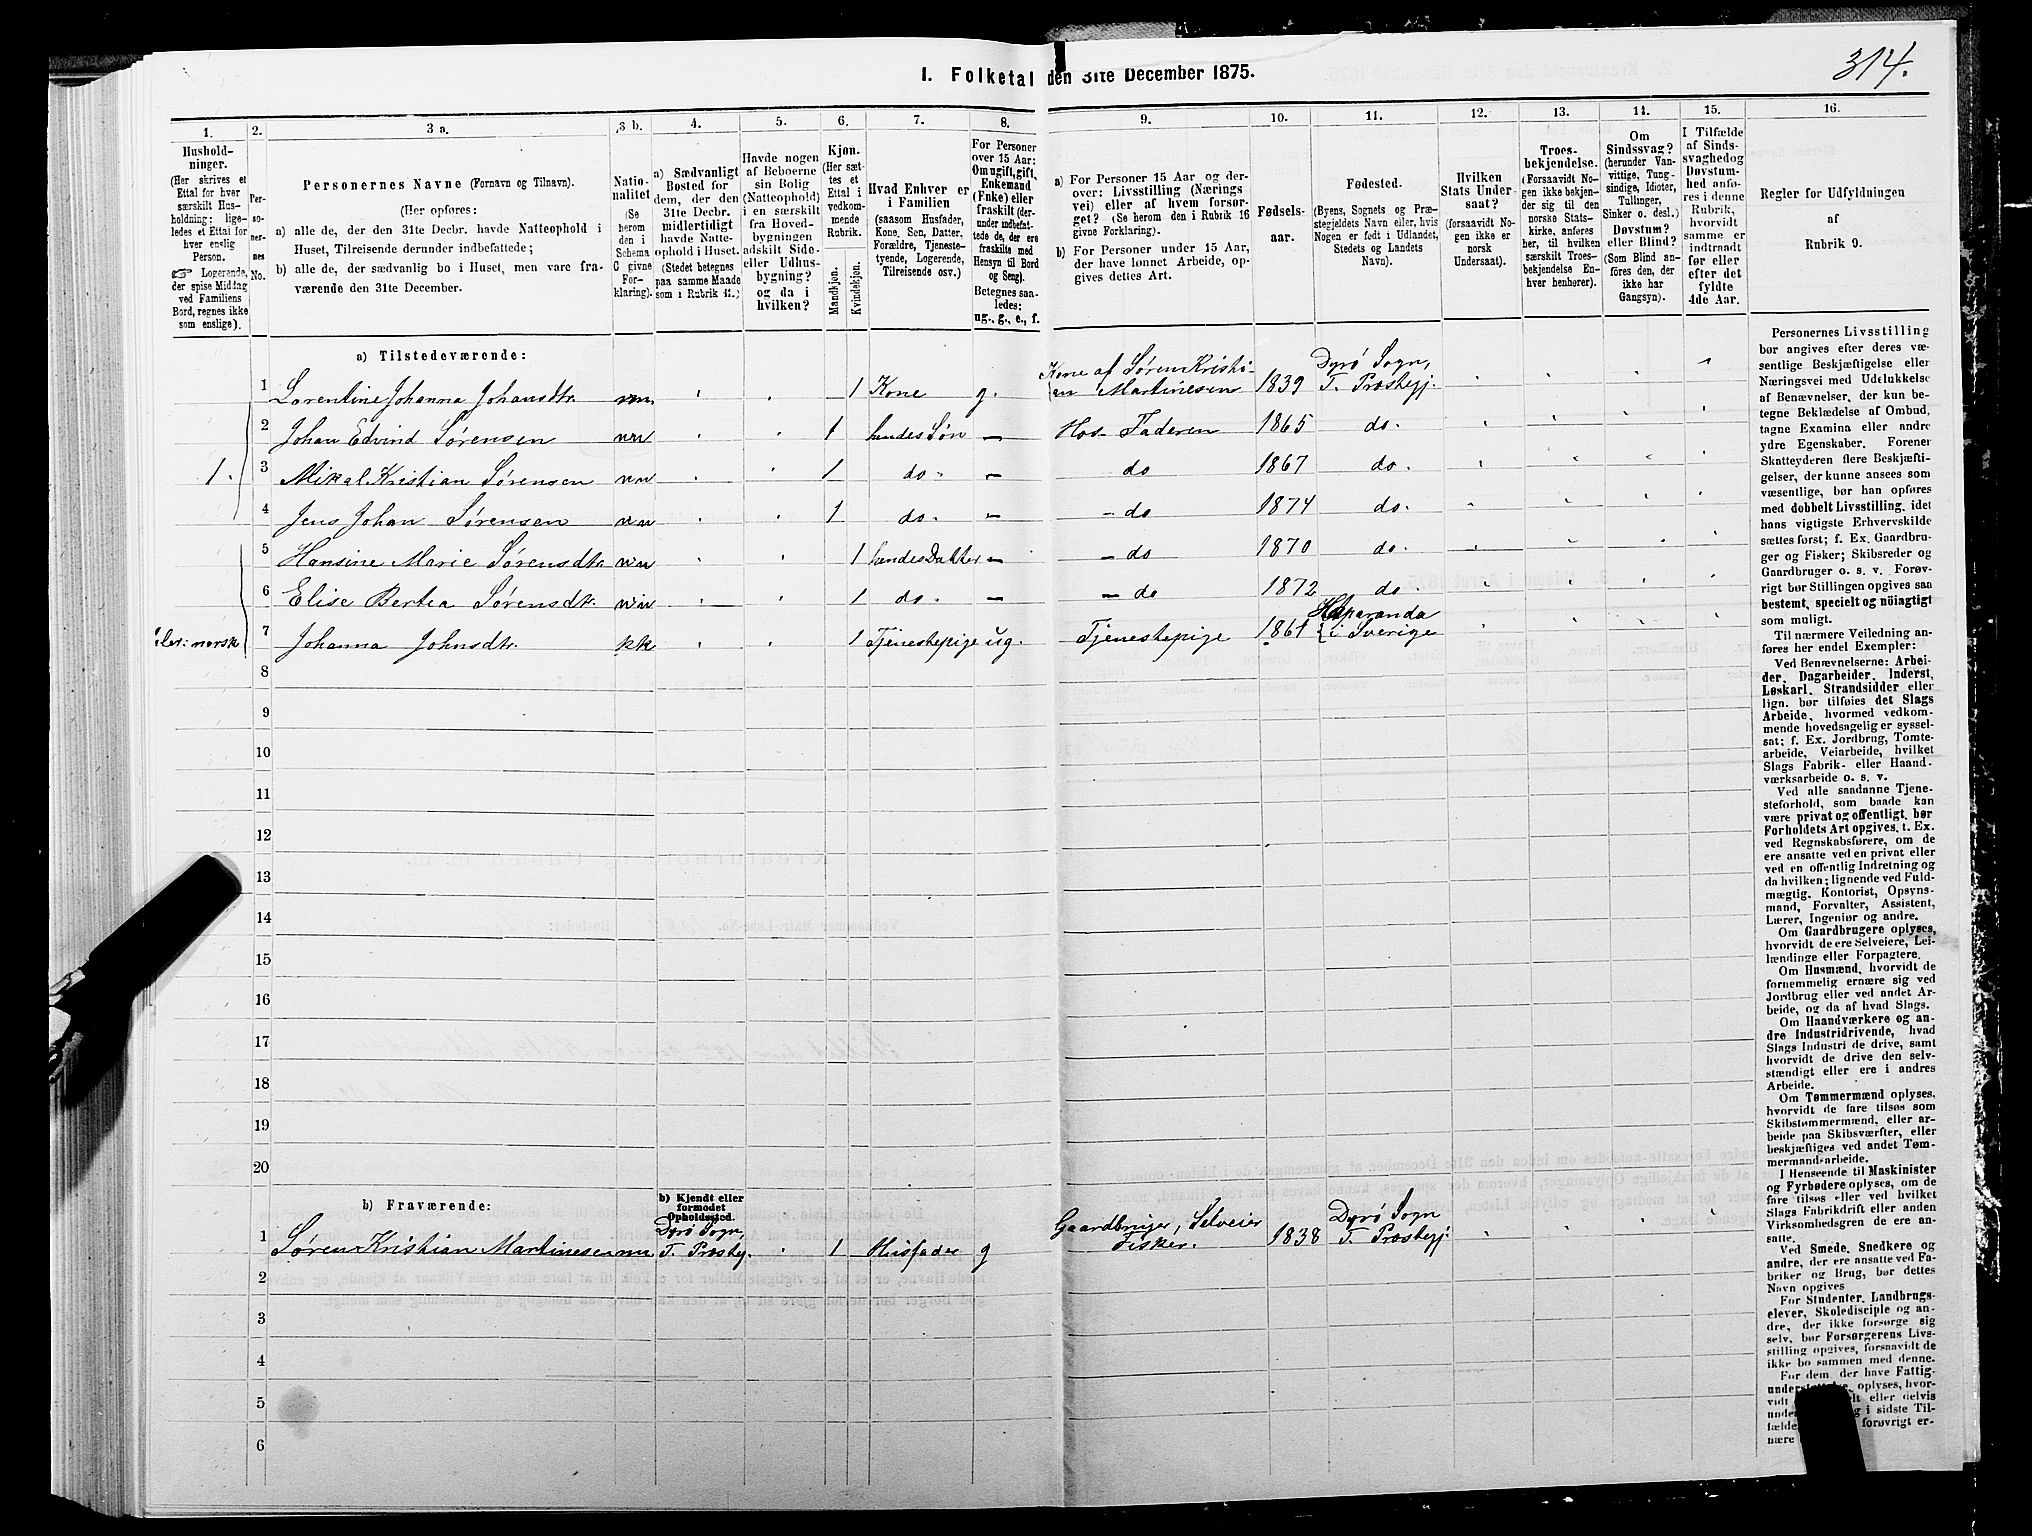 314.
I. Folketal den 31te December 1875.
1.
Hushold-
ninger.
(Her skrives et
Ettal for hver
særskilt Hus-
holdning; lige-
ledes et Ettal for
hver enslig
Person.
☞ Logerende,
der spise Middag
ved Familiens
Bord, regnes ikke
som enslige).
2.
Per-
so-
ner-
nes
No.
3 a.
Personernes Navne (Fornavn og Tilnavn).
(Her opføres:
a) alle de, der den 31te Decbr. havde Natteophold i
Huset, Tilreisende derunder indbefattede;
b) alle de, der sædvanlig bo i Huset, men vare fra-
værende den 31te December.
3 b.
Natio-
nalitet
(Se
herom
den i
Schema
C givne
For-
klaring).
4.
a) Sædvanligt
Bosted for
dem, der den
31te Decbr.
midlertidigt
havde Natte-
ophold i Huset.
(Stedet betegnes
paa samme Maade
som i Rubrik 11.)
5.
Havde nogen
af Beboerne
sin Bolig
(Natteophold)
i en særskilt
fra Hoved-
bygningen
adskilt Side-
eller Udhus-
bygning?
og da i
hvilken?
6.
Kjøn.
(Her sæt-
tes et
Ettal i
vedkom-
mende
Rubrik.
Mandkjøn.
Kvindekjøn.
7.
Hvad Enhver er
i Familien
(saasom Husfader,
Kone, Søn, Datter,
Forældre, Tjeneste-
tyende, Logerende,
Tilreisende osv.)
8.
For Personer
over 15 Aar:
Om ugift, gift,
Enkemand
(Enke) eller
fraskilt (der-
under indbefat-
tede de, der ere
fraskilte med
Hensyn til Bord
og Seng).
Betegnes saa-
ledes:
ug., g., e., f.
9.
a) For Personer 15 Aar og der-
over: Livsstilling (Nærings-
vei) eller af hvem forsør-
get? (Se herom den i Rubrik 16
givne Forklaring).
b) For Personer under 15 Aar,
der have lønnet Arbeide, op-
gives dettes Art.
10.
Fødsels-
aar.
11.
Fødested.
(Byens, Sognets og Præ-
stegjeldets Navn eller, hvis
Nogen er født i Udlandet,
Stedets og Landets
Navn).
12.
Hvilken
Stats Under-
saat?
(forsaavidt No-
gen ikke er
norsk
Undersaat).
13.
Troes-
bekjendelse.
(Forsaavidt No-
gen ikke bekjen-
der sig til den
norske Stats-
kirke, anføres
her, til hvilken
særskilt Troes-
bekjendelse En-
hver henhører).
14.
Om
Sindssvag?
(herunder Van-
vittige, Tung-
sindige, Idioter,
Tullinger,
Sinker o. desl.)
Døvstum?
eller Blind?
(Som Blind an-
føres den, der
ikke har
Gangsyn).
15.
I Tilfælde
af Sinds-
svaghed og
Døvstum-
hed anfø-
res i denne
Rubrik,
hvorvidt
samme er
indtraadt
før eller
efter det
fyldte
4de Aar.
16.
Regler for Udfyldningen
af
Rubrik 9.
a) Tilstedeværende:
1 Lorentine Johanna Johansdtr nm 1 Kone g. Kone af Søren Kristi-
en Martinesen 1839 Dyrø Sogn,
T. Præstegj.
2 Johan Edvind Sørensen nn 1 hendes Søn — Hos Faderen 1865 do.
1. 3 Mikal Kristian Sørensen nn 1 do. — do 1867 do.
4 Jens Johan Sørensen nn 1 do. — — do 1874 do.
5 Hansine Marie Sørensdtr nn 1 hendes Datter — — do 1870 do.
6 Elise Bertea Sørensdtr. nn 1 do. — — do 1872 do.
norsk 7 Johanna Johnsdtr. kk 1 Tjenestepige ug. Tjenestepige 1861 Haparanda
i Sverige
8
9
10
11
12
13
14
15
16
17
18
19
20
b) Fraværende:
b) Kjendt eller
formodet
Opholdssted.
1 Søren Kristian Martinesen nn Dyrø Sogn,
T. Præstegj. 1 Husfader g Gaardbruger, Selveier
Fisker. 1838 Dyrø Sogn
T. Præstegj.
2
3
4
5
6
Personernes Livsstilling
bør angives efter deres væ-
sentlige Beskjæftigelse eller
Næringsvei med Udelukkelse
af Benævnelser, der kun be-
tegne Beklædelse af Ombud,
tagne Examina eller andre
ydre Egenskaber. Forener
Skatteyderen flere Beskjæfti-
gelser, der kunne ansees som
væsentlige, bør han opføres
med dobbelt Livsstilling, idet
hans vigtigste Erhvervskilde
sættes først; f. Ex. Gaardbru-
ger og Fisker; Skibsreder og
Gaardbruger o. s. v. Forøv-
rigt bør Stillingen opgives saa
bestemt, specielt og nöiagtigt
som muligt.
Til nærmere Veiledning an-
føres her endel Exempler:
Ved Benævnelserne: Arbei-
der, Dagarbeider, Inderst,
Løskarl, Strandsidder eller
lign. bør tilføies det Slags
Arbeide, hvormed vedkom-
mende hovedsagelig er syssel-
sat; f. Ex. Jordbrug, Tomte-
arbeide, Veiarbeide, hvilket
Slags Fabrik- eller Haand-
værksarbeide o. s. v.
Ved alle saadanne Tjene-
steforhold, som baade kan
være privat og offentligt, bør
Forholdets Art opgives, t. Ex.
ved Regnskabsførere, om de
ere ansatte ved en privat eller
ved en offentlig Indretning og
da hvilken; lignende ved Fuld-
mægtig, Kontorist, Opsyns-
mand, Forvalter, Assistent,
Lærer, Ingeniør og andre.
Om Gaardbrugere oplyses,
hvorvidt de ere Selveiere, Lei-
lændinge eller Forpagtere.
Om Husmænd, hvorvidt de
fornemmelig ernære sig ved
Jordbrug eller ved andet Ar-
beide, og da af hvad Slags.
Om Haandværkere og an-
dre Industridrivende, hvad
Slags Industri de drive, samt
hvorvidt de drive den selv-
stændigt eller ere i andres
Arbeide.
Om Tømmermænd oplyses,
hvorvidt de fare tilsøs som
Skibstømmermænd, eller ar-
beide paa Skibsværfter, eller
beskjæftiges ved andet Tøm-
mermandsarbeide.
I Henseende til Maskinister
og Fyrbødere oplyses, om de
fare tilsøs eller ved hvilket
Slags Fabrikdrift eller anden
Virksomhedsgren de ere an-
satte.
Ved Smede, Snedkere og
andre, der ere ansatte ved Fa-
briker og Brug, bør dettes
Navn opgives
For Studenter, Landbrugs-
elever, Skoledisciple og an-
dre, der ikke forsørge sig
selv, bør Forsørgerens Livs-
stilling opgives, forsaavidt de
ikke bo sammen med denne.
For dem, der have Fattig-
oplyses, hvor-
vidt eller delvis
i sidste Til-
fælde forøvrigt er-
nære